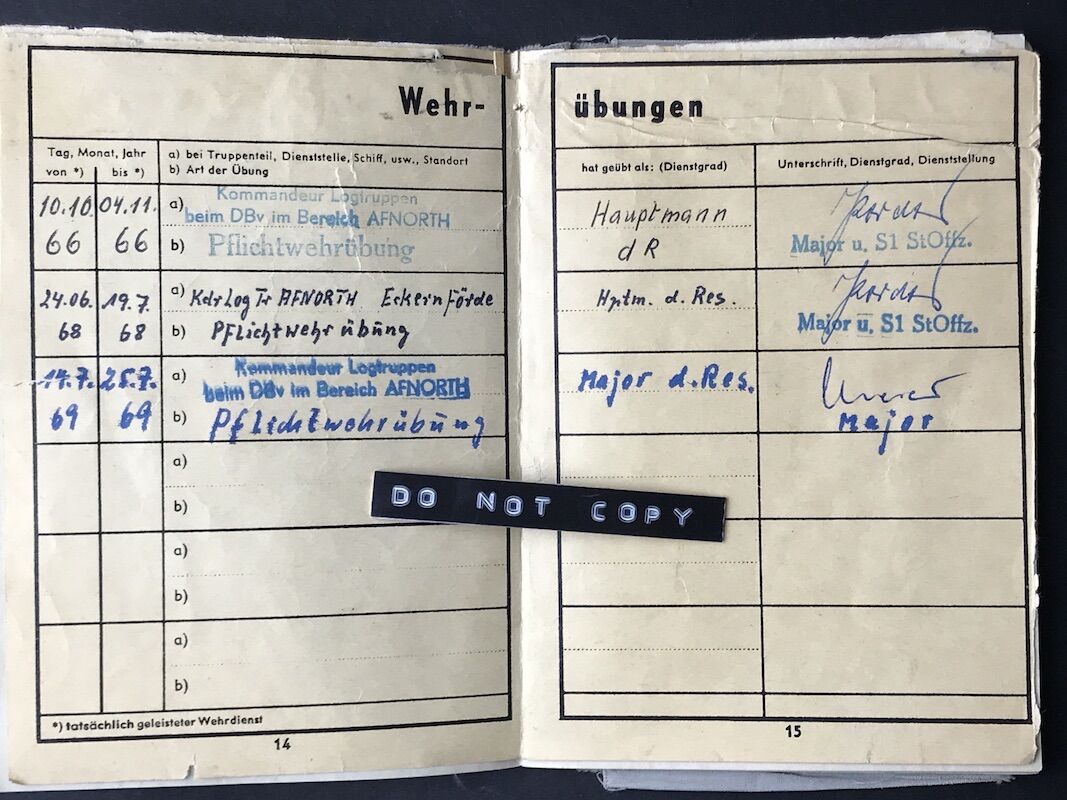 Wehr-
Tag, Monat, Jahr
von *) bis *)
a) bei Truppenteil, Dienststelle, Schiff, usw., Standort
b) Art der Übung
10.10. 04.11.
66 66
a) Kommandeur Logtruppen
beim DBv im Bereich AFNORTH
b) Pflichtwehrübung
24.06. 19.7.
68 68
a) KdrLogTr AFNORTH Eckernförde
b) Pflichtwehrübung
14.7. 25.7.
69 69
a) Kommandeur Logtruppen
beim DBv im Bereich AFNORTH
b) Pflichtwehrübung
a)
b)
a)
b)
a)
b)
*) tatsächlich geleisteter Wehrdienst
14
übungen
hat geübt als: (Dienstgrad)
Unterschrift, Dienstgrad, Dienststellung
Hauptmann
d R
Major u. S1 StOffz.
Hptm. d. Res.
Major u. S1 StOffz.
Major d. Res.
Major
15
DO NOT COPY